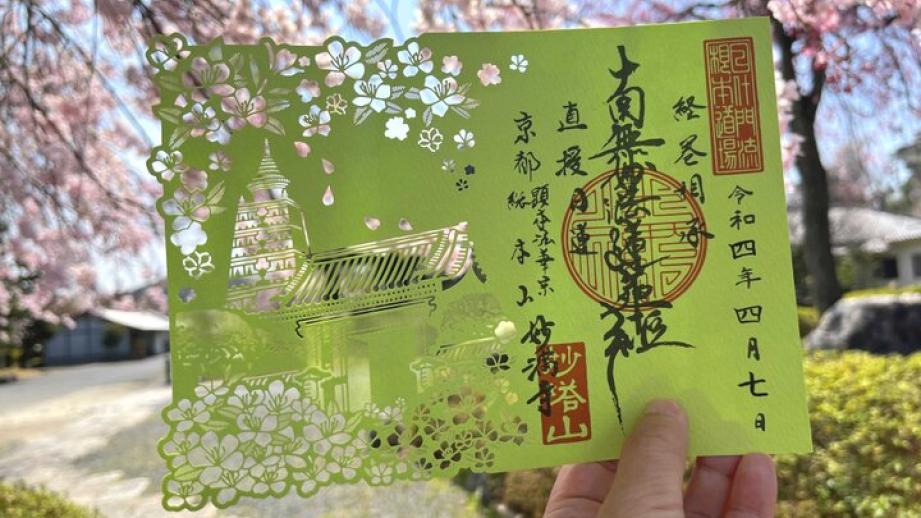 日什門流
根本道場
令和四年四月七日
経巻相承
南無妙法蓮華経
直授日蓮
顕本法華宗
京都総本山妙満寺
妙塔山